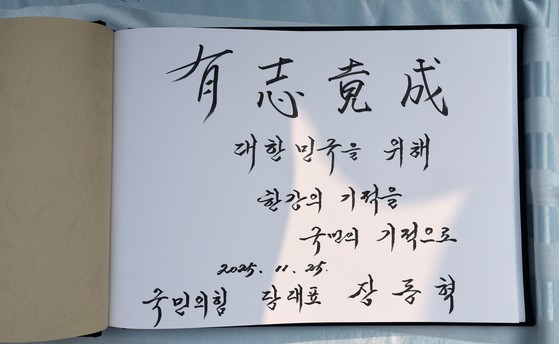 有志竟成
대한민국을 위해
한강의 기적을
국민의 기적으로
2025. 11. 25.
국민의힘 당대표 장동혁